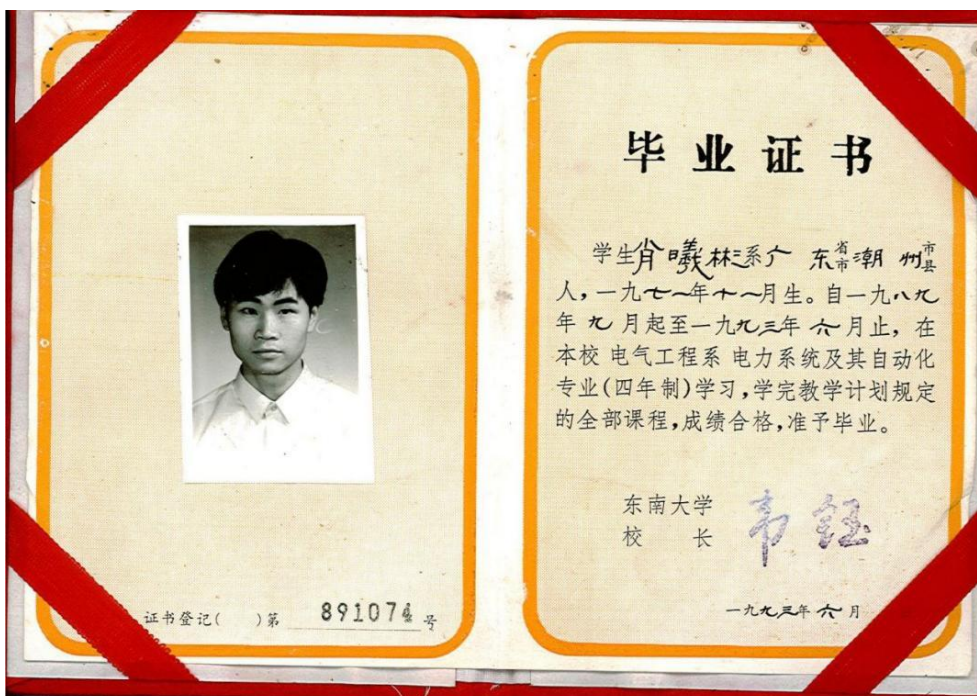 毕业证书
学生肖曦林系广东省市潮州市县
人,一九七一年十一月生。自一九八九
年九月起至一九九三年六月止,在
本校电气工程系电力系统及其自动化
专业(四年制)学习,学完教学计划规定
的全部课程,成绩合格,准予毕业。
东南大学
校 长 韦钰
一九九三年六月
证书登记( )第 891074 号